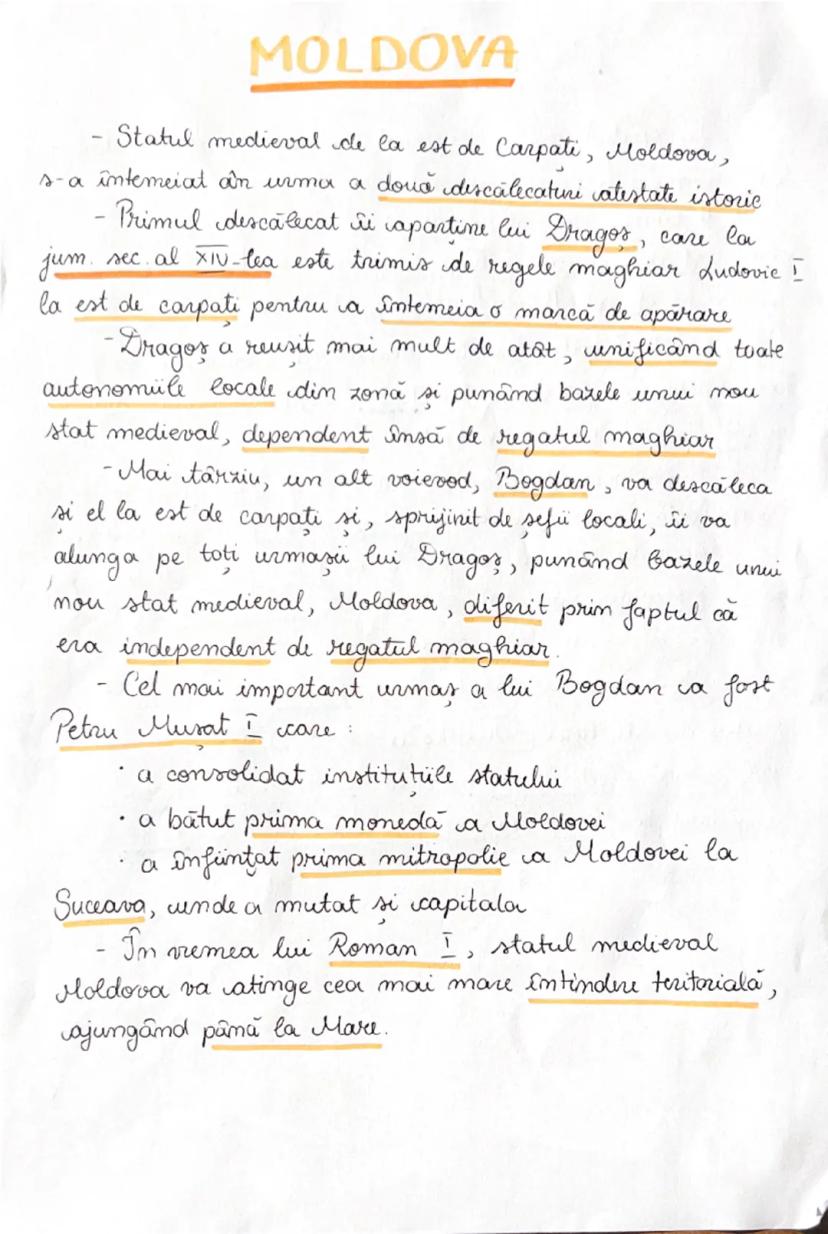 MOLDOVA
- Statul medieval de la est de Carpați, Moldova,
s-a întemeiat în urma a două descălecaturi atestate istoric
- Primul descălecat îi aparține lui Dragoș, care la
jum. sec. al XIV-lea este trimis de regele maghiar Ludovic I
la est de carpați pentru a întemeia o marcă de apărare
- Dragoș a reușit mai mult de atât, unificând toate
autonomiile locale din zonă și punând bazele unui nou
stat medieval, dependent însă de regatul maghiar
- Mai târziu, un alt voievod, Bogdan, va descăleca
și el la est de carpați și, sprijinit de șefii locali, îi va
alunga pe toți urmașii lui Dragoș, punând bazele unui
nou stat medieval, Moldova, diferit prin faptul că
era independent de regatul maghiar.
- Cel mai important urmaș a lui Bogdan va fost
Petru Mușat I care :
· a consolidat instituțiile statului
· a bătut prima monedă a Moldovei
· a înființat prima mitropolie a Moldovei la
Suceava, unde a mutat și capitala
- În vremea lui Roman I, statul medieval
Moldova va atinge cea mai mare întindere teritorială,
ajungând până la Mare.